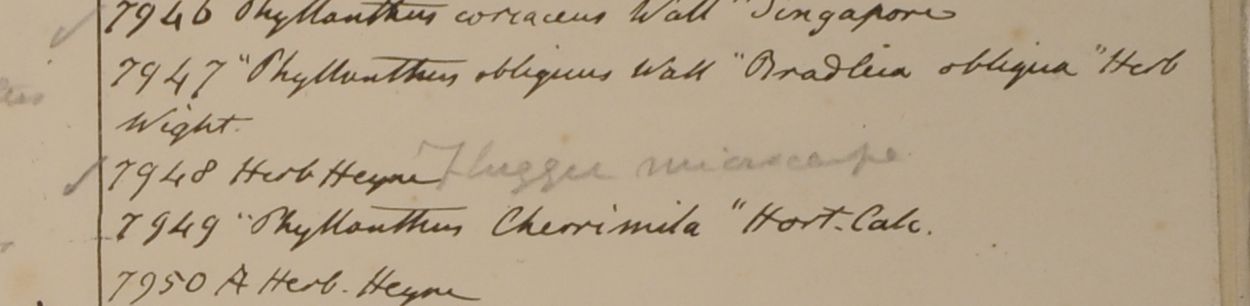 7946 Phyllanthus coriaceus Wall " Singapore
7947 "Phyllanthus obliquus Wall "Bradleia obliqua" Herb
Wight.
7948 Herb Heyne Fluggea microcarpa
7949 "Phyllanthus Cherrimila" Hort. Calc.
7950 A Herb. Heyne